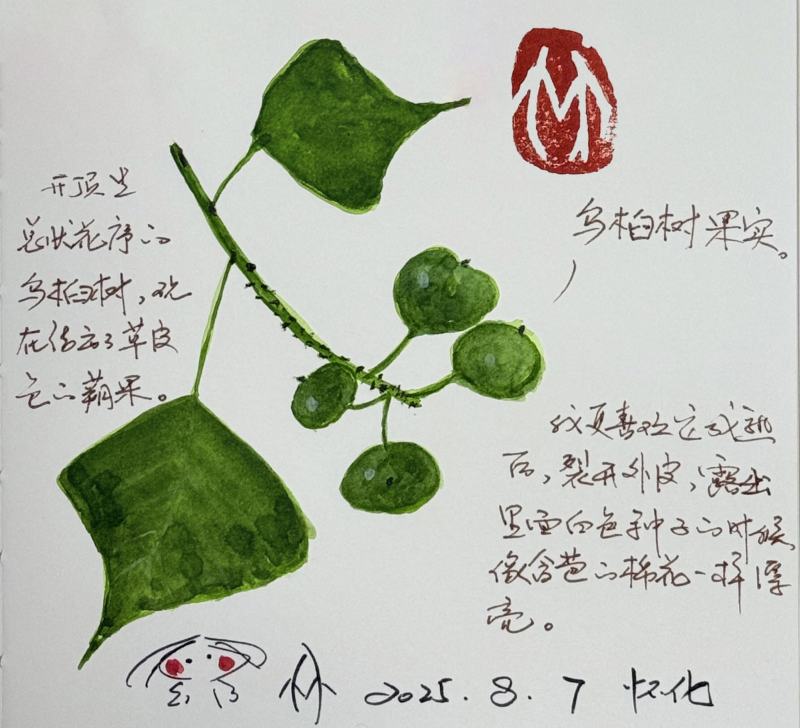 开顶生
总状花序的
乌桕树，现
在结出了草皮
色的蒴果。
乌桕树果实。
我更喜欢它成熟
后，裂开外皮，露出
里面白色种子的时候，
像含苞的棉花一样漂
亮。
林 2025.8.7 怀化